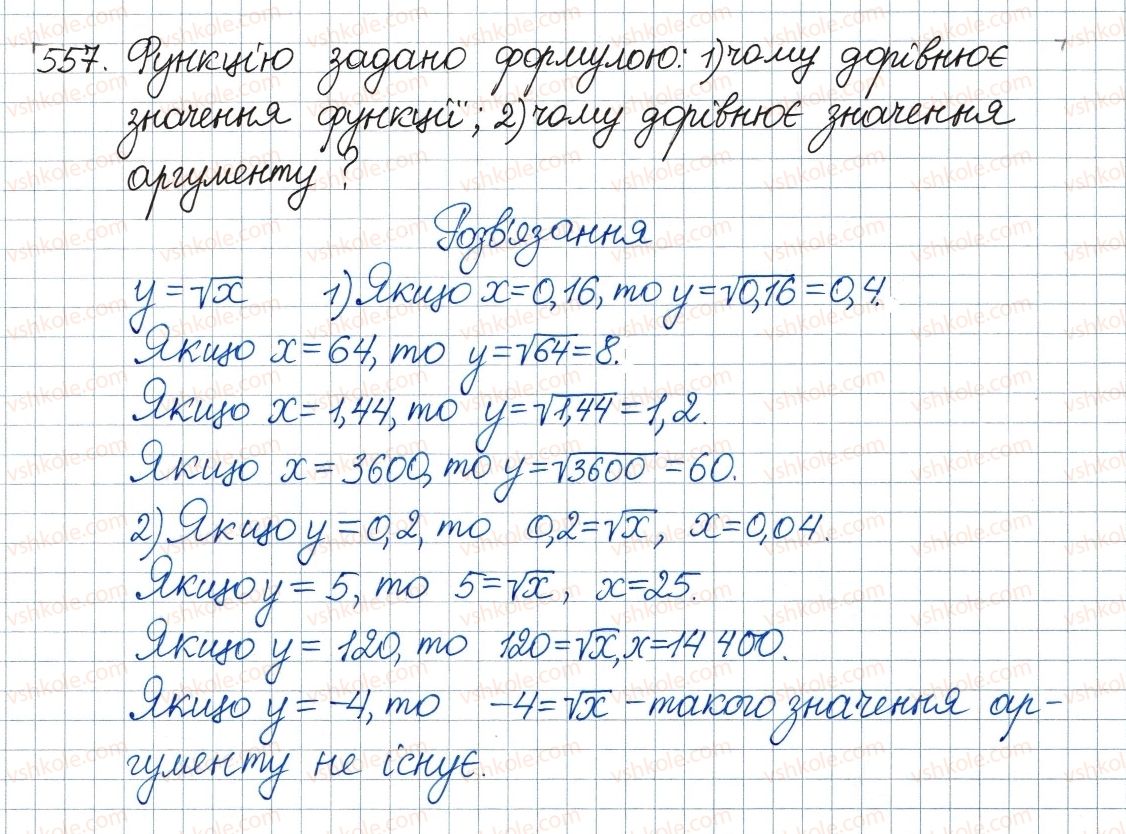 557. Функцію задано формулою: 1) чому дорівнює
значення функції; 2) чому дорівнює значення
аргументу?
Розв'язання
y = √x 1) Якщо x = 0,16, то y = √0,16 = 0,4.
Якщо x = 64, то y = √64 = 8.
Якщо x = 1,44, то y = √1,44 = 1,2.
Якщо x = 3600, то y = √3600 = 60.
2) Якщо y = 0,2, то 0,2 = √x, x = 0,04.
Якщо y = 5, то 5 = √x, x = 25.
Якщо y = 120, то 120 = √x, x = 14 400.
Якщо y = -4, то -4 = √x - такого значення ар-
гументу не існує.
vshkole.com